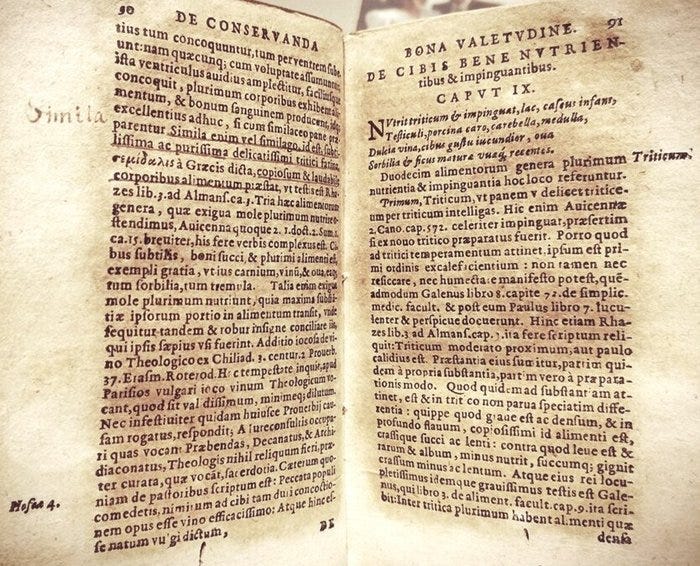 90 DE CONSERVANDA
tius tum concoquuntur, tum per ventrem sube-
unt: nam quæcunq; cum voluptate assumuntur,
ista ventriculus auidius amplectitur, faciliusque
concoquit, plurimum corporibus exhibent ali-
mentum, & bonum sanguinem producunt, idq;
excellentius adhuc, si cum similaceo pane
parentur Simila enim vel similago, id est, subti-
Simila
lissima ac purissima delicatissimi tritici farina,
σεμίδαλις à Græcis dicta, copiosum & laudabile
corporibus alimentum præstat, vt testis est Rha-
zes lib. 3. ad Almans. ca. 3. Tria hæc alimentorum
genera, quæ exigua mole plurimum nutrire
stendimus, Auicenna quoque 2. 1. doct. 2. Sum. 1.
ca. 15. breuiter, his fere verbis complexus est. Ci-
bus subtilis, boni succi, & plurimi alimenti est,
exempli gratia, vt ius carnium, vinũ, & oua,
tum sorbilia, tum tremula. Talia enim exigua
mole plurimum nutriunt, quia maxima substã-
tiæ ipsorum portio in alimentum transit, vnde
sequitur tandem & robur insigne conciliare iis,
qui ipsis sæpius vsi fuerint. Additio iocosa de vi-
no Theologico ex Chiliad. 3. centur. 2 Prouerb.
37. Erasm. Roterod. Hac tempestate inquit, apud
Parisios vulgari ioco vinum Theologicum vo-
cant, quod sit validissimum, minimeq; dilutum.
Nec infestiuiter quidam huiusce Prouerbij cau-
sam rogatus, respondit; A iureconsultis occupa-
ri quas vocant Præbendas, Decanatus, & Archi-
diaconatus, Theologis nihil reliquum fieri, præ-
ter curata, quæ vocãt, sacerdotia. Cæterum quo-
niam de pastoribus scriptum est: Peccata populi
Hosea 4.
comedetis, nimirum ad cibi tam duri concoctio-
nem opus esse vino efficacissimo: Atque hinc es-
se natum vulgi dictum,
DE
BONA VALETVDINE. 91
DE CIBIS BENE NVTRIEN-
tibus & impinguantibus.
CAPVT IX.
NVtrit triticum & impinguat, lac, caseus infans,
Testiculi, porcina caro, cerebella, medulla,
Dulcia vina, cibus gustu iucundior, oua
Sorbilia & ficus maturæ vuæq; recentes.
Duodecim alimentorum genera plurimum
Triticum.
nutrientia & impinguantia hoc loco referuntur.
Primum, Triticum, vt panem videlicet tritice-
um per triticum intelligas. Hic enim Auicennæ
2. Cano. cap. 572. celeriter impinguat, præsertim
si ex nouo tritico præparatus fuerit. Porro quod
ad tritici temperamentum attinet. ipsum est pri-
mi ordinis excalefacientium: non tamen nec
resiccare, nec humectare manifesto potest, quẽ-
admodum Galenus libro 8. capite 72. de simplic.
medic. facult. & post eum Paulus libro 7. lucu-
lenter & perspicue docuerunt. Hinc etiam Rha-
zes lib. 3. ad Almans. cap. 3. ita fere scriptum reli-
quit: Triticum moderato proximum, aut paulo
calidius est. Præstantia eius sumitur, partim qui-
dem à propria substantia, partim vero à præpara-
tionis modo. Quod quidem ad substantiam at-
tinet, est & in tritico non parua speciatim diffe-
rentia: quippe quod graue est ac densum, & in
profundo flauum, copiosissimi id alimenti est,
crassique succi ac lenti: contra quod leue est &
rarum & album, minus nutrit, succumq; gignit
crassum minus ac lentum. Atque eius rei locu-
pletissimus idemque grauissimus testis est Gale-
nus, qui libro 3. de aliment. facult. cap. 9. ita scri-
bit: Inter tritica plurimum habent alimenti quæ
densa